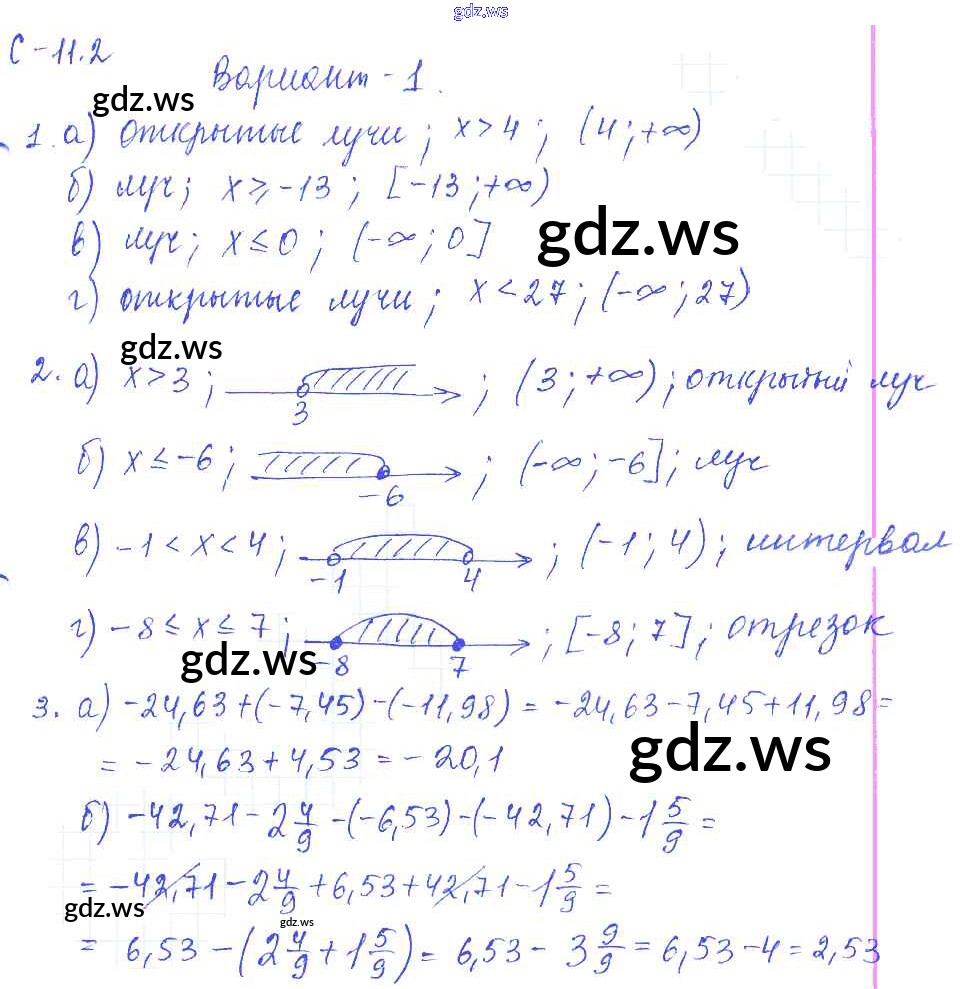 gdz.ws
С-11.2
Вариант-1.
gdz.ws
1. а) открытые лучи; x>4; (4;+∞)
б) луч; x≥-13; [-13;+∞)
в) луч; x≤0; (-∞;0]
gdz.ws
г) открытые лучи; x<27; (-∞;27)
gdz.ws
2. а) x>3; 3; (3;+∞); открытый луч
б) x≤-6; -6; (-∞;-6]; луч
в) -1<x<4; -1 4; (-1;4); интервал
г) -8≤x≤7; -8 7; [-8;7]; отрезок
gdz.ws
3. а) -24,63+(-7,45)-(-11,98)=-24,63-7,45+11,98=
=-24,63+4,53=-20,1
gdz.ws
б) -42,71-2 4/9-(-6,53)-(-42,71)-1 5/9=
=-42,71-2 4/9+6,53+42,71-1 5/9=
gdz.ws
gdz.ws
= 6,53-(2 4/9+1 5/9)=6,53-3 9/9=6,53-4=2,53